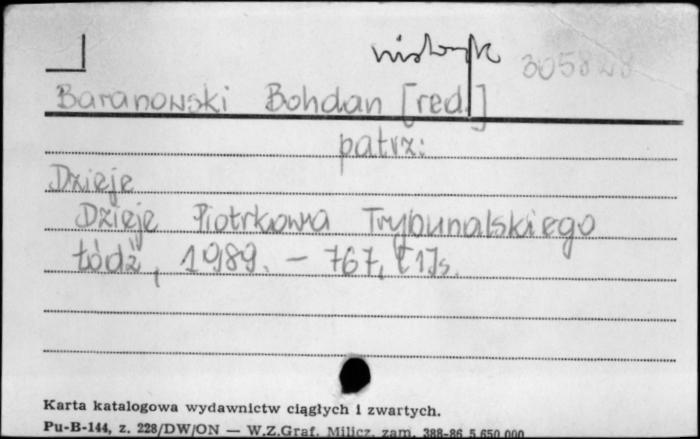 historyk 305828
Baranowski Bohdan [red.]
patrz:
Dzieje
Dzieje Piotrkowa Trybunalskiego
Łódź, 1989. – 767, [1]s.
Karta katalogowa wydawnictw ciągłych i zwartych.
Pu-B-144, z. 228/DW/ON — W.Z.Graf. Milicz, zam. 388-86 5.650.000